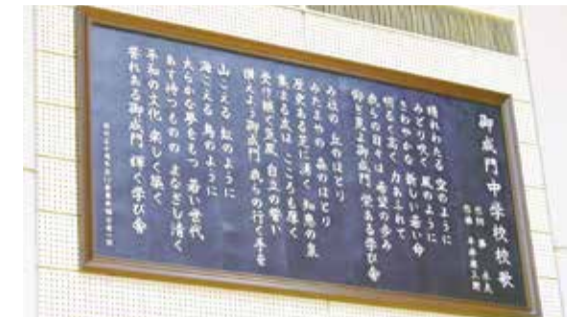 御成門中学校校歌
作詞 勝 承夫
作曲 平井康三郎
晴れわたる 空のように
みどり吹く 風のように
さわやかな 新しい若い命
明るく高く 力あふれて
我らの日々は 希望の歩み
仰ぎ見よ御成門 栄ある学び舎
みほの 丘のほとり
みたまやの 森のほとり
歴史ある芝に湧く 知恵の泉
集まる友は こころも厚く
受け継ぐ気風 自立の誓い
讃えよう御成門 我らの行く手を
山こえる 虹のように
海こえる 鳥のように
大らかな夢をもつ 若い世代
あす待つものの まなざし清く
平和の文化 楽しく築く
誉れある御成門 輝く学び舎